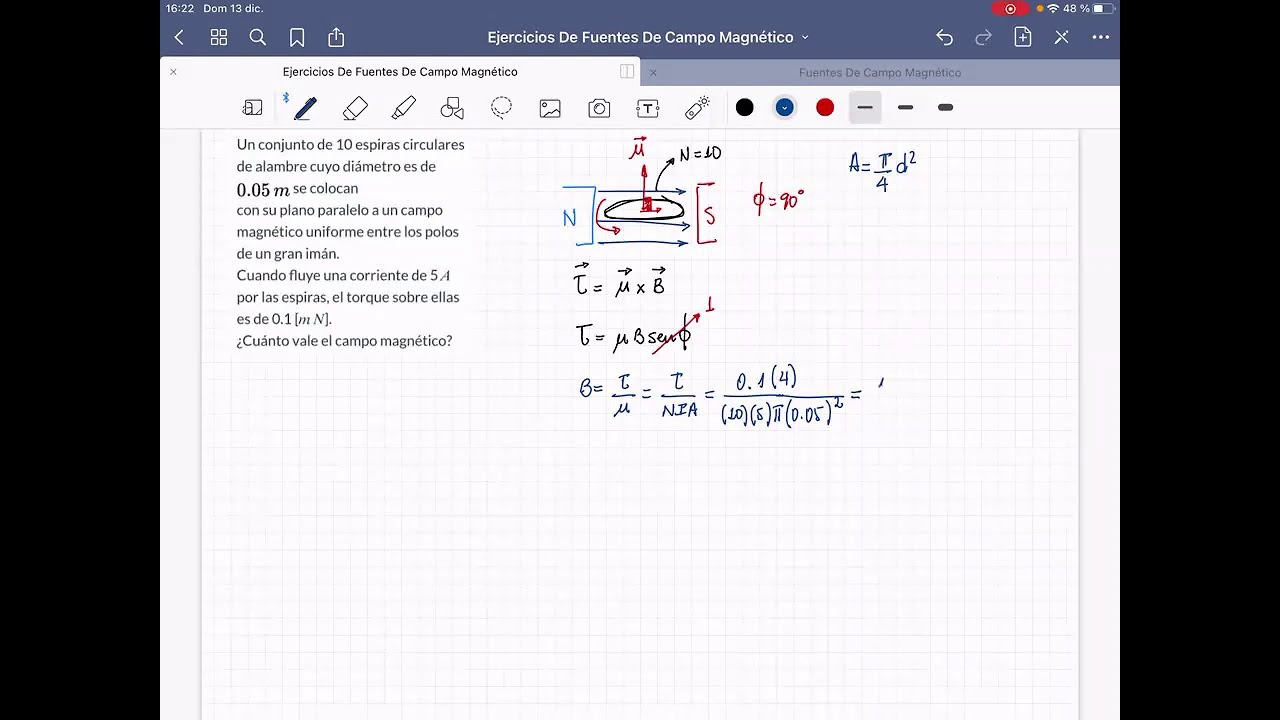 16:22 Dom 13 dic. 48 %
Ejercicios De Fuentes De Campo Magnético
Ejercicios De Fuentes De Campo Magnético
Fuentes De Campo Magnético
Un conjunto de 10 espiras circulares
de alambre cuyo diámetro es de
0.05 m se colocan
con su plano paralelo a un campo
magnético uniforme entre los polos
de un gran imán.
Cuando fluye una corriente de 5 A
por las espiras, el torque sobre ellas
es de 0.1 [m N].
¿Cuánto vale el campo magnético?
μ⃗
N=10
N
S
ϕ=90°
A=π/4 d²
τ⃗ = μ⃗ x B⃗
τ = μ B sen ϕ 1
B= τ/μ = τ/NIA = 0.1(4)/(10)(5)π(0.05)² =